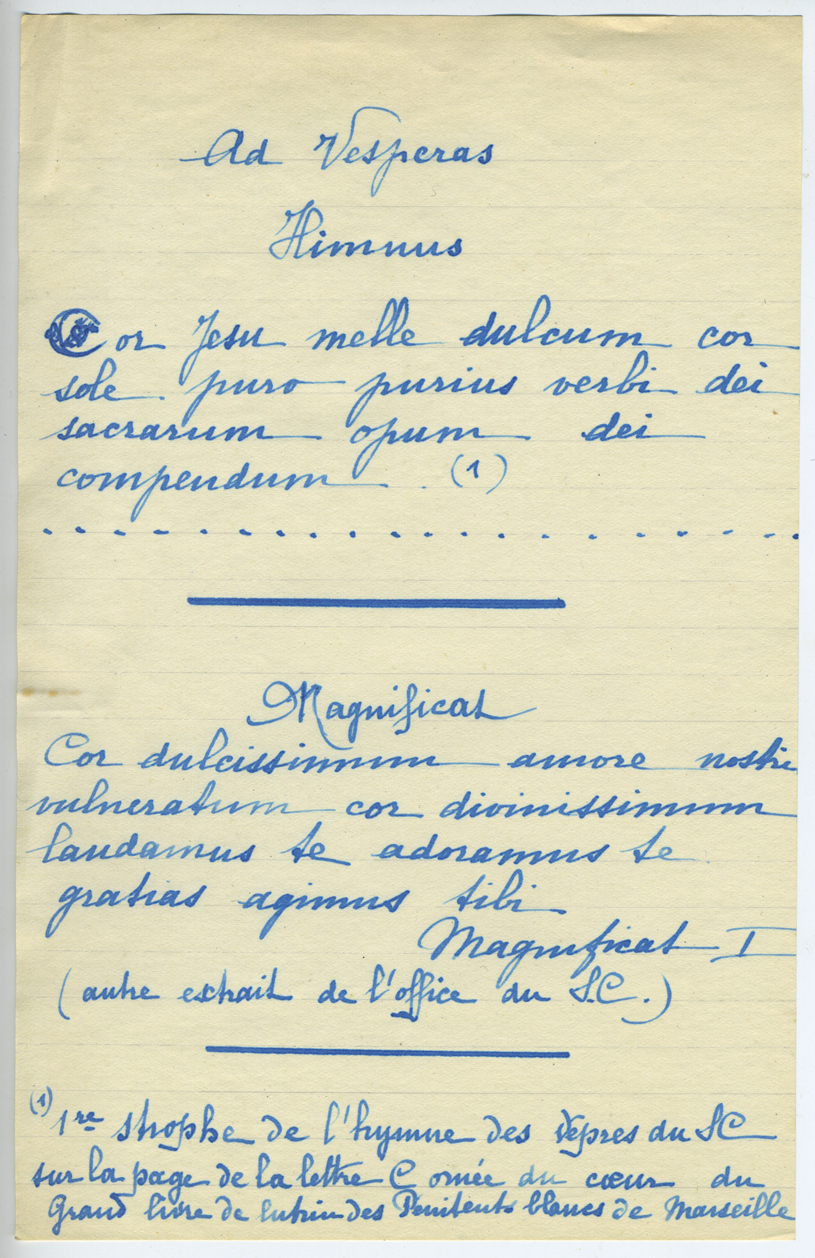 Ad Vesperas
Himnus
Cor Jesu melle dulcum cor
sole puro purius verbi dei
sacrarum opum dei
compendum . (1)
Magnificat
Cor dulcissimum amore nostri
vulneratum cor divinissimum
laudamus te adoramus te
gratias agimus tibi
Magnificat I
(autre extrait de l'office du S.C.)
(1) 1re strophe de l'hymne des Vêpres du SC
sur la page de la lettre C ornée du cœur du
Grand livre de lutrin des Pénitents blancs de Marseille